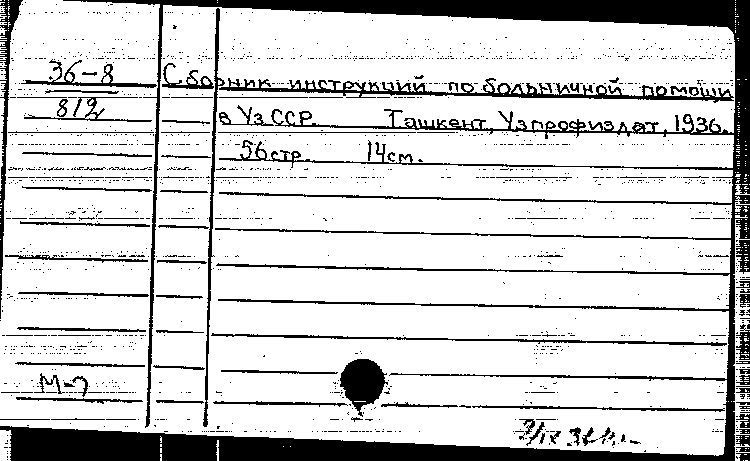 36-8 Сборник инструкций по больничной помощи
812 в УзССР. Ташкент, Узпрофиздат, 1936.
56стр. 14см.
М-